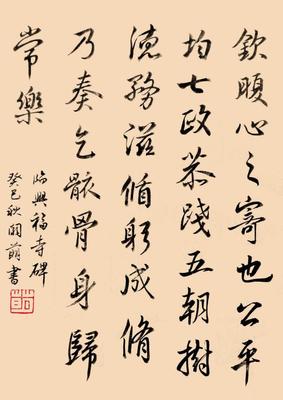 欽腹心之寄也公平
均七政恭踐五朝樹
德務滋脩躬成脩
乃奏乞骸骨身歸
常樂
臨興福寺碑
癸巳秋萌書